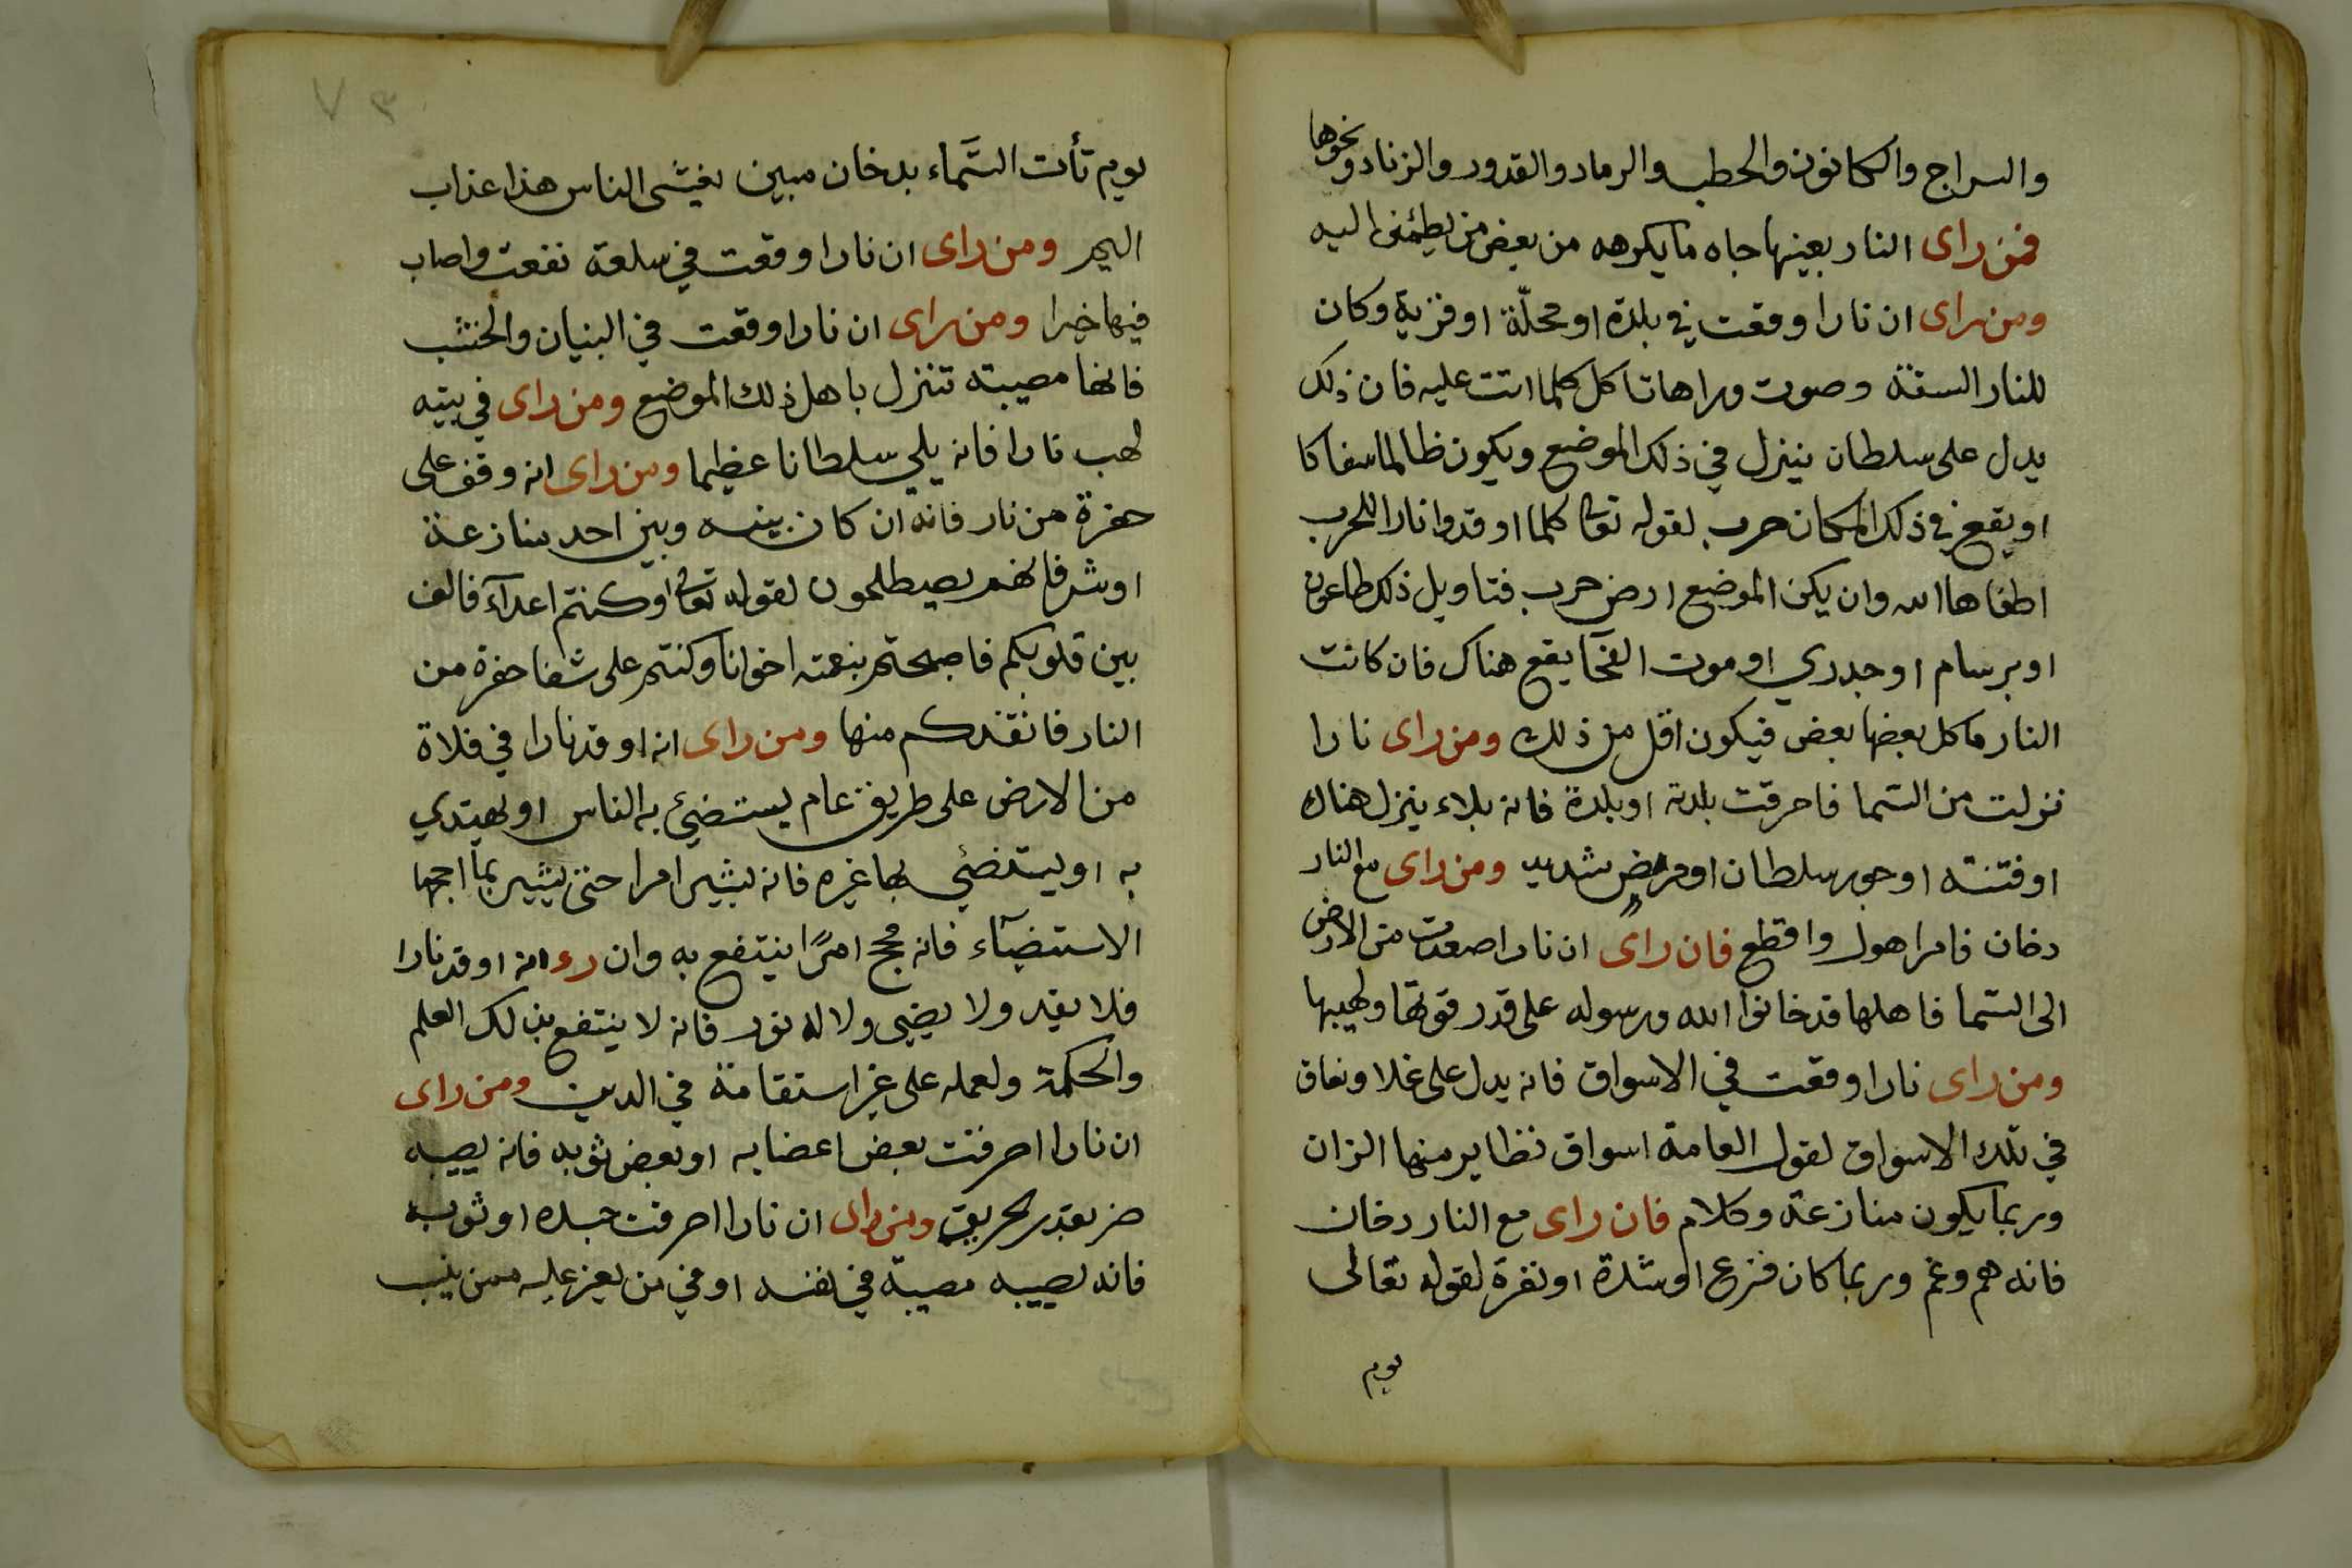 والسراج والكانون والحطب والرماد والقدور والزناد ونحوها
فمن راى النار بعينها جاه ما يكرهه من بعض من يطمئن اليه
ومن راى ان نارا وقعت في بلدة او محلّة او قرية وكان
للنار السنة وصوت وراها تاكل كلما اتت عليه فان ذلك
يدل على سلطان ينزل في ذلك الموضع ويكون ظالما سفاكا
او يقع في ذلك المكان حرب لقوله تعالى كلما اوقدوا نارا للحرب
اطفاها الله وان يكن الموضع ارض حرب فتاويل ذلك طاعون
او برسام او جدري او موت الفجآ يقع هناك فان كانت
النار ياكل بعضها بعض فيكون اقل من ذلك ومن راى نارا
نزلت من السّما فاحرقت بلدته او بلدة فانه بلاء ينزل هناك
او فتنة او جور سلطان او مرض شديد ومن راى مع النار
دخان فامرا هول واقطع فان راى ان نارا صعدت من الارض
الى السّما فاهلها قد خانوا الله ورسوله على قدر قوتها ولهيبها
ومن راى نارا وقعت في الاسواق فانه يدل على غلا ونفاق
في تلك الاسواق لقول العامة اسواق تظاير منها الزان
وربما يكون منازعة وكلام فان راى مع النار دخان
فانه هم وغم وربما كان فزع او شدة او نفرة لقوله تعالى
يوم
٧٣
يوم تأت السّماء بدخان مبين يغشى الناس هذا عذاب
اليم ومن راى ان نارا وقعت في سلعة نفعت واصاب
فيها خيرا ومن راى ان نارا وقعت في البنيان والخشب
فانها مصيبته تنزل باهل ذلك الموضع ومن راى في بيته
لهب نارا فانه يلي سلطانا عظيما ومن راى انه وقف على
حفرة من نار فانه ان كان بينه وبين احد منازعة
او شر فانهم يصيطلحون لقوله تعالى او كنتم اعدآء فالف
بين قلوبكم فاصبحتم بنعمته اخوانا وكنتم على شفا حفرة من
النار فانقذكم منها ومن راى انه اوقد نارا في فلاة
من الارض على طريق عام يستضئ به الناس او يهتدي
به او يستضئي بها غيره فانه يثير امرا حتى يثير بما اجمها
الاستضآء فانه مجح امرًا ينتفع به وان رء انه اوقد نارا
فلا يقد ولا يضي ولا له نور فانه لا ينتفع بذلك العلم
والحكمة ولعمله على غير استقامة في الدين ومن راى
ان نارا احرقت بعض اعضايه او بعض ثوبه فانه يصيبه
ضر بقدر الحريق ومن راى ان نارا احرقت جسده او ثوبه
فانه يصيبه مصيبة في نفسه او في من يعز عليه ممن ينسب